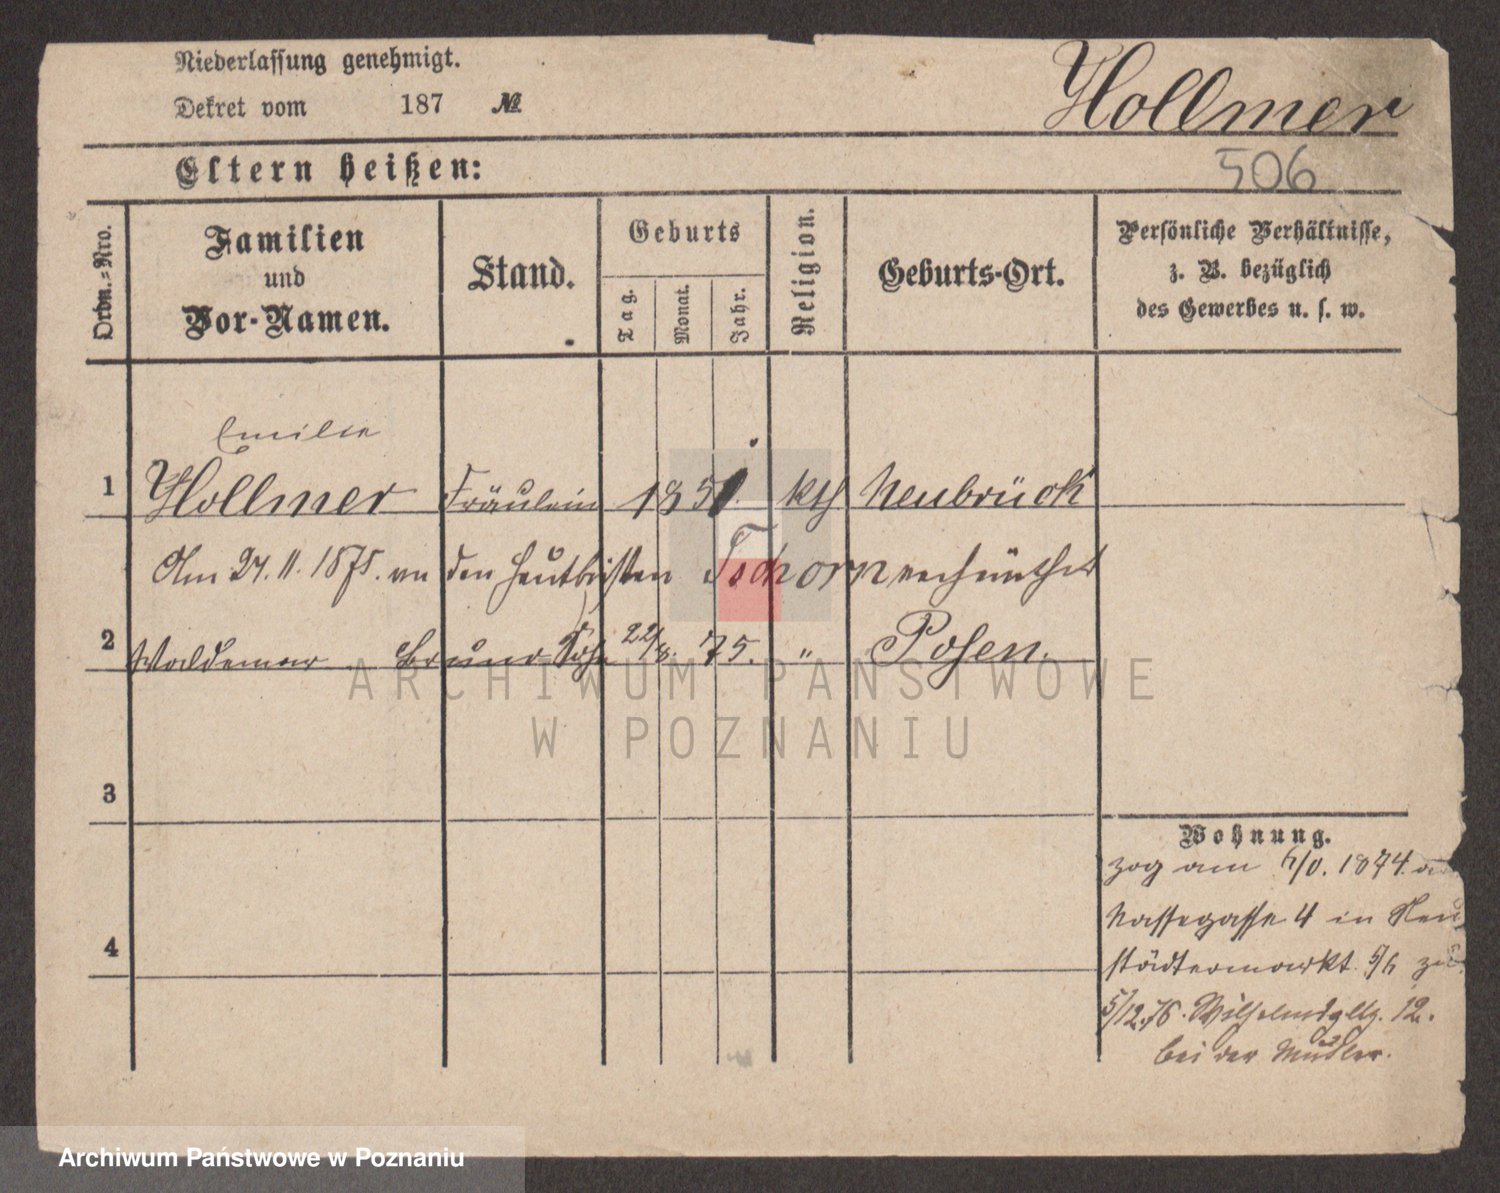 Niederlassung genehmigt.
Dekret vom 187 №
Hollmer
Eltern heißen:
506
Ordn.=Nro.
Familien
und
Vor-Namen.
Stand.
Geburts
Tag.
Monat.
Jahr.
Religion.
Geburts-Ort.
Persönliche Verhältnisse,
z. B. bezüglich
des Gewerbes u. s. w.
Emilie
1 Hollmer Fräulein 1851. kth Neubrück
Am 27. 11. 1875. an den Tschorn
2 Waldemar Bruno Sohn 22/8. 75. " Posen.
3
Wohnung.
zog am 1874.
Nassegasse 4 in Neu
städtermarkt
4
5/12.76. Wilhelmspltz. 12.
bei der Mutter.
ARCHIWUM PAŃSTWOWE
W POZNANIU
Archiwum Państwowe w Poznaniu